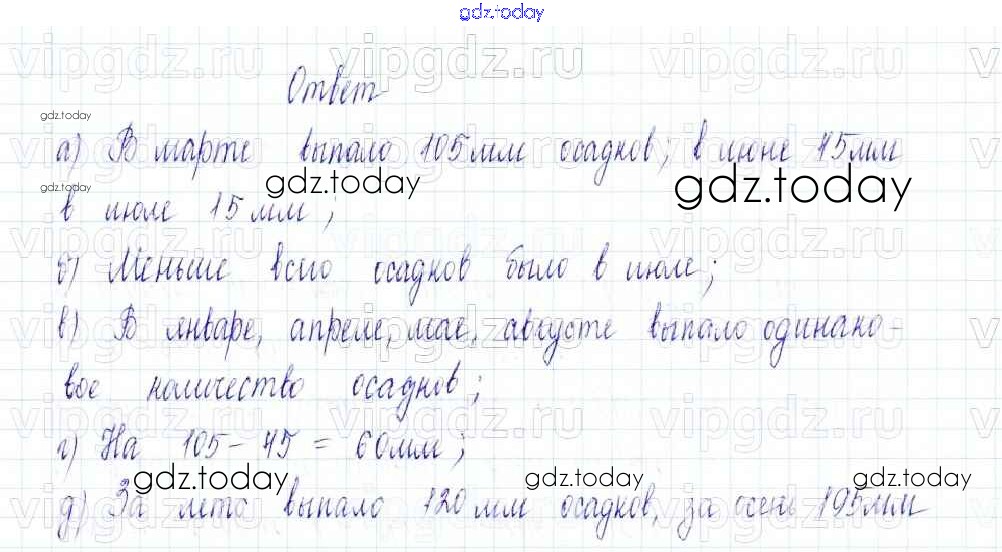 gdz.today
vipgdz.ru vipgdz.ru vipgdz.ru
Ответ
gdz.today
а) В марте выпало 105 мм осадков; в июне 45 мм
gdz.today gdz.today gdz.today
в июле 15 мм;
б) Меньше всего осадков было в июле;
в) В январе, апреле, мае, августе выпало одинако-
вое количество осадков;
г) На 105 - 45 = 60 мм;
gdz.today gdz.today gdz.today
д) За лето выпало 120 мм осадков, за осень 195 мм